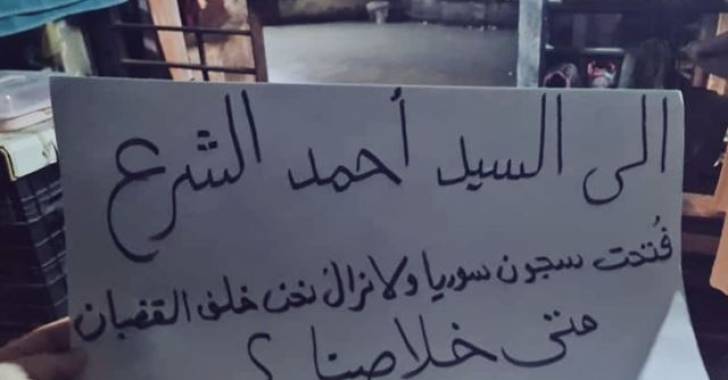 الى السيد أحمد الشرع
فُتحت سجون سوريا ولا نزال نحن خلف القضبان
متى خلاصنا ؟